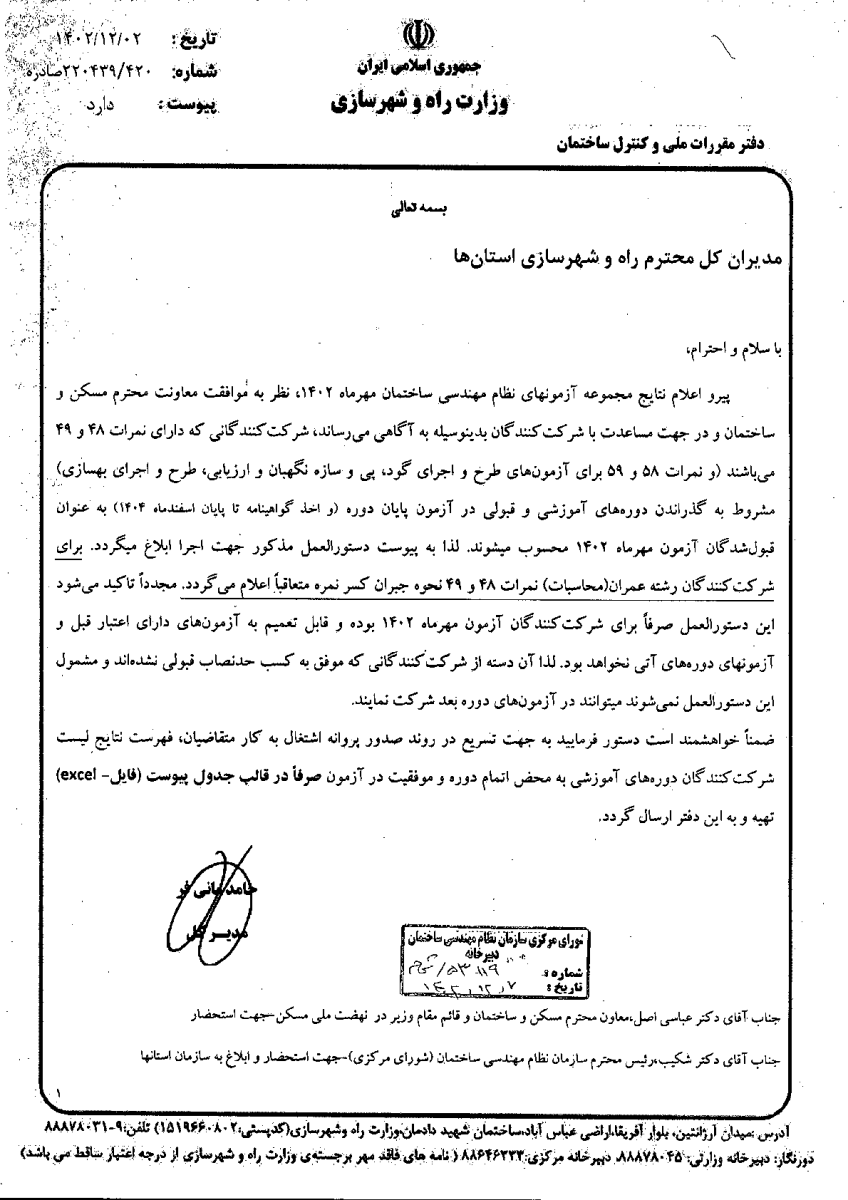 تاریخ: ۱۴۰۲/۱۲/۰۲
شماره: ۲۲۰۴۳۹/۴۲۰صادره
پیوست: دارد
جمهوری اسلامی ایران
وزارت راه و شهرسازی
دفتر مقررات ملی و کنترل ساختمان
بسمه تعالی
مدیران کل محترم راه و شهرسازی استان‌ها
با سلام و احترام،
پیرو اعلام نتایج مجموعه آزمونهای نظام مهندسی ساختمان مهرماه ۱۴۰۲، نظر به موافقت معاونت محترم مسکن و
ساختمان و در جهت مساعدت با شرکت‌کنندگان بدینوسیله به آگاهی می‌رساند، شرکت‌کنندگانی که دارای نمرات ۴۸ و ۴۹
می‌باشند (و نمرات ۵۸ و ۵۹ برای آزمون‌های طرح و اجرای گود، پی و سازه نگهبان و ارزیابی، طرح و اجرای بهسازی)
مشروط به گذراندن دوره‌های آموزشی و قبولی در آزمون پایان دوره (و اخذ گواهینامه تا پایان اسفندماه ۱۴۰۴) به عنوان
قبول‌شدگان آزمون مهرماه ۱۴۰۲ محسوب میشوند. لذا به پیوست دستورالعمل مذکور جهت اجرا ابلاغ میگردد. برای
شرکت‌کنندگان رشته عمران(محاسبات) نمرات ۴۸ و ۴۹ نحوه جبران کسر نمره متعاقباً اعلام می‌گردد. مجدداً تاکید می‌شود
این دستورالعمل صرفاً برای شرکت‌کنندگان آزمون مهرماه ۱۴۰۲ بوده و قابل تعمیم به آزمون‌های دارای اعتبار قبل و
آزمونهای دوره‌های آتی نخواهد بود. لذا آن دسته از شرکت‌کنندگانی که موفق به کسب حدنصاب قبولی نشده‌اند و مشمول
این دستورالعمل نمی‌شوند میتوانند در آزمون‌های دوره بعد شرکت نمایند.
ضمناً خواهشمند است دستور فرمایید به جهت تسریع در روند صدور پروانه اشتغال به کار متقاضیان، فهرست نتایج لیست
شرکت‌کنندگان دوره‌های آموزشی به محض اتمام دوره و موفقیت در آزمون صرفاً در قالب جدول پیوست (فایل- excel)
تهیه و به این دفتر ارسال گردد.
حامد مانی فر
مدیر کل
شورای مرکزی سازمان نظام مهندسی ساختمان
دبیرخانه
شماره:
تاریخ: ۱۴۰۲/۱۲/۷
جناب آقای دکتر عباسی اصل،معاون محترم مسکن و ساختمان و قائم مقام وزیر در نهضت ملی مسکن-جهت استحضار
جناب آقای دکتر شکیب،رئیس محترم سازمان نظام مهندسی ساختمان (شورای مرکزی)-جهت استحضار و ابلاغ به سازمان استانها
۱
آدرس :میدان آرژانتین، بلوار آفریقا،اراضی عباس آباد،ساختمان شهید دادمان،وزارت راه وشهرسازی(کدپستی:۱۵۱۹۶۶۰۸۰۲) تلفن:۹-۸۸۸۷۸۰۳۱
دورنگار: دبیرخانه وزارتی: ۸۸۸۷۸۰۴۵، دبیرخانه مرکزی:۸۸۶۴۶۳۳۳ ( نامه های فاقد مهر برجسته‌ی وزارت راه و شهرسازی از درجه اعتبار ساقط می باشد)